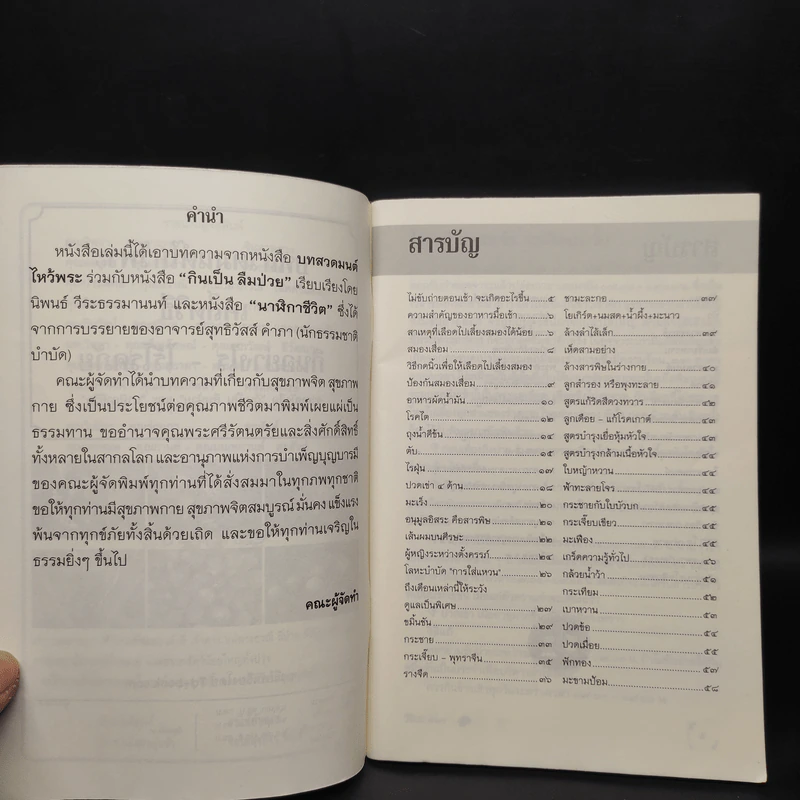 คำนำ
หนังสือเล่มนี้ได้เอาบทความจากหนังสือ บทสวดมนต์
ไหว้พระ ร่วมกับหนังสือ “กินเป็น ลืมป่วย” เรียบเรียงโดย
นิพนธ์ วีระธรรมานนท์ และหนังสือ “นาฬิกาชีวิต” ซึ่งได้
จากการบรรยายของอาจารย์สุทธิวัสส์ คำภา (นักธรรมชาติ
บำบัด)
คณะผู้จัดทำได้นำบทความที่เกี่ยวกับสุขภาพจิต สุขภาพ
กาย ซึ่งเป็นประโยชน์ต่อคุณภาพชีวิตมาพิมพ์เผยแผ่เป็น
ธรรมทาน ขออำนาจคุณพระศรีรัตนตรัยและสิ่งศักดิ์สิทธิ์
ทั้งหลายในสากลโลก และอานุภาพแห่งการบำเพ็ญบุญบารมี
ของคณะผู้จัดพิมพ์ทุกท่านที่ได้สั่งสมมาในทุกภพทุกชาติ
ขอให้ทุกท่านมีสุขภาพกาย สุขภาพจิตสมบูรณ์ มั่นคง แข็งแรง
พ้นจากทุกข์ภัยทั้งสิ้นด้วยเถิด และขอให้ทุกท่านเจริญใน
ธรรมยิ่งๆ ขึ้นไป
คณะผู้จัดทำ
สารบัญ
ไม่ขับถ่ายตอนเช้า จะเกิดอะไรขึ้น ......๕
ความสำคัญของอาหารมื้อเช้า ......๖
สาเหตุที่เลือดไปเลี้ยงสมองได้น้อย ......๖
สมองเสื่อม ......๘
วิธีกดนิ้วเพื่อให้เลือดไปเลี้ยงสมอง
ป้องกันสมองเสื่อม ......๙
อาหารผัดน้ำมัน ......๑๐
โรคไต ......๑๒
ถุงน้ำดีข้น ......๑๔
ตับ ......๑๕
ไรฝุ่น ......๑๗
ปวดเข่า ๔ ด้าน ......๑๘
มะเร็ง ......๒๐
อนุมูลอิสระ คือสารพิษ ......๒๑
เส้นผมบนศีรษะ ......๒๒
ผู้หญิงระหว่างตั้งครรภ์ ......๒๔
โลหะบำบัด "การใส่แหวน" ......๒๖
ถึงเดือนเหล่านี้ให้ระวัง
ดูแลเป็นพิเศษ ......๒๗
ขมิ้นชัน ......๒๙
กระชาย ......๓๓
กระเจี๊ยบ – พุทราจีน ......๓๕
รางจืด ......๓๖
ชามะละกอ ......๓๗
โยเกิร์ต+นมสด+น้ำผึ้ง+มะนาว
ล้างลำไส้เล็ก ......๓๙
เห็ดสามอย่าง
ล้างสารพิษในร่างกาย ......๔๐
ลูกสำรอง หรือพุงทะลาย ......๔๑
สูตรแก้ริดสีดวงทวาร ......๔๒
ลูกเดือย – แก้โรคเกาต์ ......๔๓
สูตรบำรุงเยื่อหุ้มหัวใจ ......๔๓
สูตรบำรุงกล้ามเนื้อหัวใจ ......๔๔
ใบหญ้าหวาน ......๔๔
ฟ้าทะลายโจร ......๔๔
กระชายกับใบบัวบก ......๔๕
กระเจี๊ยบเขียว ......๔๕
มะเฟือง ......๔๕
เกร็ดความรู้ทั่วไป ......๔๖
กล้วยน้ำว้า ......๕๑
กระเทียม ......๕๒
เบาหวาน ......๕๓
ปวดข้อ ......๕๔
ปวดเมื่อย ......๕๕
ฟักทอง ......๕๗
มะขามป้อม ......๕๘